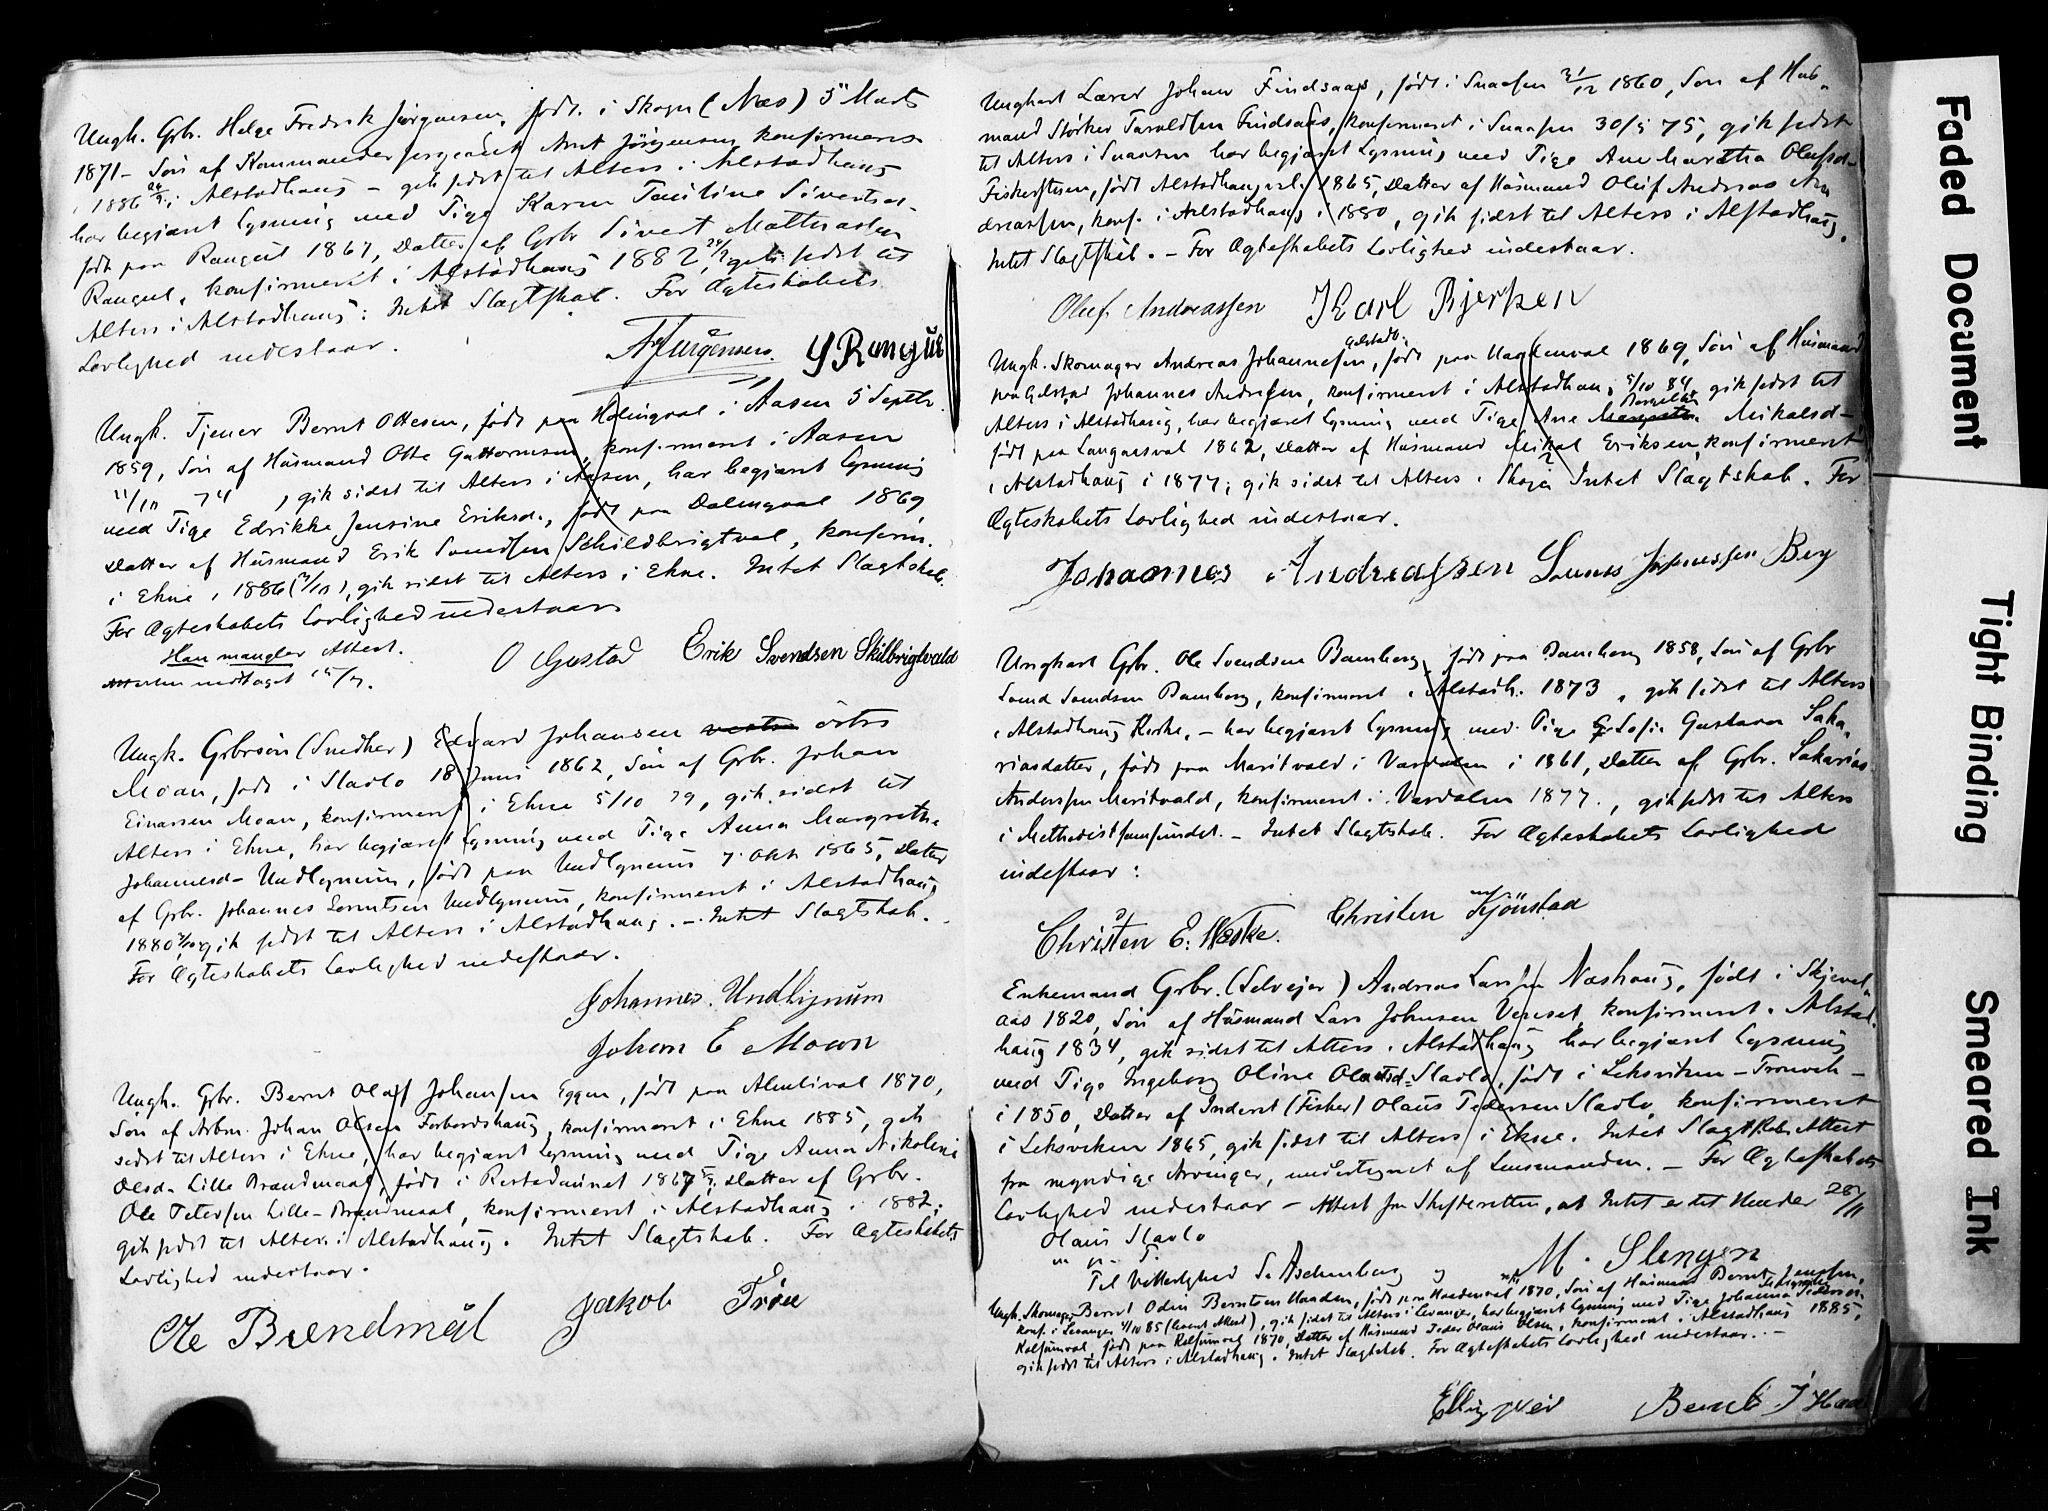 Ungk. Grbr. Helge Fredrik Jørgensen, født i Skogn (Næs) 5" Marts
1871 – Søn af Kommandersergeant Arnt Jørgensen, konfirmeret
i 1886 i Alstadhaug – gik sidst til Alters i Alstadhaug
har begjæret Lysning med Pige Karen Pauline Sivertsd.
født paa Ranguel 1867, Datter af Grbr Sivert Matthiasen
Ranguel, konfirmeret i Alstadhaug 1882, gik sidst til
Alters i Alstadhaug: Intet Slagtskab. For Ægteskabets
Lovlighed indestaar.
A Jürgensen. S Ranguel
Ungk. Tjener Bernt Ottesen, født paa Holmqval i Aasen 5 Septb.
1859, Søn af Husmand Otte Guttormsen, konfirmeret i Aasen
11/10 74, gik sidst til Alters i Aasen, har begjæret Lysning
med Pige Edrikke Jensine Eriksd., født paa Dalemqval 1869
Datter af Husmand Erik Svendsen Schilbrigtval, konfirm.
i Ekne i 1886 ( /10), gik sidst til Alters i Ekne. Intet Slagtskab.
For Ægteskabets Lovlighed indestaar
Han mangler Attest.
modtaget
O Gustad Erik Svendsen Skilbrigtvald
Ungk. Grbrsøn (Snedker) Edvard Johansen vestre östre
Moan, født i Skavlo 18 Juni 1862, Søn af Grbr. Johan
Einarsen Moan, konfirmeret i Ekne 5/10 79, gik sidst til
Alters i Ekne, har begjæret Lysning med Pige Anna Margrethe
Johannesd– Undlynum, født paa Undlynum 7 Okt 1865, Datter
af Grbr. Johannes Lorntsen Undlynum, konfirmeret i Alstadhaug
1880 gik sidst til Alters i Alstadhaug. – Intet Slagtskab.
For Ægteskabets Lovlighed indestaar.
Johannes. Undlignum
Johan E Moan
Ungk. Grbr. Bernt Olaf Johansen Eggen, født paa Almlival 1870,
Søn af Arbm. Johan Olsen Forbordshaug, konfirmeret i Ekne 1885, gik
sidst til Alters i Ekne, har begjæret Lysning med Pige Anna Nikoline
Olsd– Lille Brændmaal, født i 1867, Datter af Grbr.
Ole Petersen Lille–Brændmaal, konfirmeret i Alstadhaug i 1882;
gik sidst til Alters i Alstadhaug. Intet Slagtskab. For Ægteskabets
Lovlighed indestaar.
Ole Brændmål Jakob Trøen
Ungkarl Lærer Johan Findsaas, født i Snaasen 31/12 1860, Søn af Hus–
mand Størker Taraldsen Findsaas, konfirmeret i Snaasen 30/5 75, gik sidst
til Alters i Snaasen har begjæret Lysning med Pige Ane Martha Olufsd–
født Alstadhaug 1865, Datter af Husmand Oluf Andreas An
dreassen, konf. i Alstadhaug i 1880, gik sidst til Alters i Alstadhaug.
Intet Slagtskab. – For Ægteskabets Lovlighed indestaar.
Oluf Andreassen Karl Bjerken
Gilstad
Ungk. Skomager Andreas Johannesen, født paa 1869, Søn af Husmand
paa Gilstad Johannes Andresen, konfirmeret i Alstadhaug 5/10 84, gik sidst til
Alters i Alstadhaug, har begjæret Lysning med Pige Ane Mikalsd–
født paa Langaasval 1862, Datter af Husmand Mikal Eriksen, konfirmeret
i Alstadhaug i 1877; gik sidst til Alters i Skogn Intet Slagtskab. For
Ægteskabets Lovlighed indestaar.
Johannes Andreassen Johannessen Berg
Ungkarl Grbr. Ole Svendsen Bamberg, født paa Bamberg 1858, Søn af Grbr
Svend Svendsen Bamberg, konfirmeret i Alstadh. 1873, gik sidst til Alters
i Alstadhaug Kirke, – har begjæret Lysning med Pige Sofie Gustava Saka
riasdatter, født paa Maritvald i Værdalen i 1861, Datter af Grbr. Sakarias
Anderssen Maritvald, konfirmeret i Værdalen 1877., gik sidst til Alters
i Methodistsamfundet. – Intet Slagtskab. For Ægteskabets Lovlighed
indestaar:
Christen E. Hæske. Christen Kjönstad
Enkemand Grbr. (Selvejer) Andreas Larsen Næshaug, født i Skjevel
aas 1820, Søn af Husmand Lars Johnsen Veneset, konfirmeret i Alstad
haug 1834, gik sidst til Alters i Alstadhaug har begjæret Lysning
med Pige Ingeborg Oline Olausd– Slavlo, født i Leksviken –
i 1850, Datter af Inderst (Fisker) Olaus Pedersen Slavlo, konfirmeret
i Leksviken 1865, gik sidst til Alters i Ekne. Intet Slagtskab. Attest
fra myndige Arvinger, undertegnet af Lensmanden. – For Ægteskabets
Lovlighed indestaar – Attest fra Skifteretten, at Intet er til Hinder 28/11
Olaus Slavlo
m. p. P.
Til Vitterlighed S. Aschenberg og M. Slengen
Ungk. Skomager Bernt Odin Berntsen Haanden, født paa 1870, Søn af Husmand Bernt Jensen,
konf. i Levanger 4/10 85, gik sidst til Alters i Levanger, har begjæret Lysning med Pige Johanna Pedersen
Kalsumval, født paa Kalsumval 1870, Datter af Husmand Peder Olaus Olsen, konfirmeret i Alstadhaug 1885,
gik sidst til Alters i Alstadhaug. Intet Slagtskab. For Ægteskabets Lovlighed indestaar. –
Bernt J
Faded Document
Tight Binding
Smeared Ink